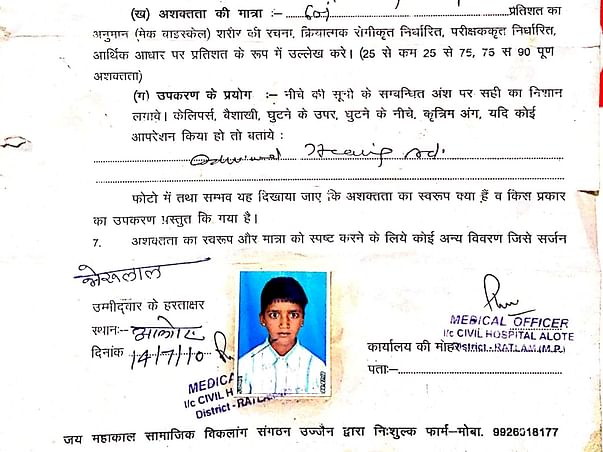 (ख) अशक्तता की मात्रा :- 60% प्रतिशत का
अनुमान (मेक वाडस्केल) शरीर की रचना, क्रियात्मक रांगीकृत निर्धारित, परीक्षककृत निर्धारित,
आर्थिक आधार पर प्रतिशत के रूप में उल्लेख करे। (25 से कम 25 से 75, 75 स 90 पूण
अशक्तता)
(ग) उपकरण के प्रयोग :- नीचे की सूची के सम्बन्धित अंश पर सही का निशान
लगावे। केलिपर्स, वैशाखी, घुटने के उपर, घुटने के नीचे, कृत्रिम अंग, यदि कोई
आपरेशन किया हो तो बताये :
फोटो में तथा सम्भव यह दिखाया जाए कि अशक्तता का स्वरूप क्या हैं व किस प्रकार
का उपकरण प्रस्तुत कि गया है।
7. अशक्तता का स्वरूप और मात्रा को स्पष्ट करने के लिये कोई अन्य विवरण जिसे सर्जन
भेरूलाल
उम्मीद्वार के हस्ताक्षर
स्थान:- आलोट
दिनांक 14/7/10
MEDICA
I/c CIVIL H
District - RATLA
MEDICAL OFFICER
I/c CIVIL HOSPITAL ALOTE
District - RATLAM (M.P.)
कार्यालय की मोहर
पता:-
जय महाकाल सामाजिक विकलांग संगठन उज्जैन द्वारा निःशुल्क फार्म-मोबा. 9926018177